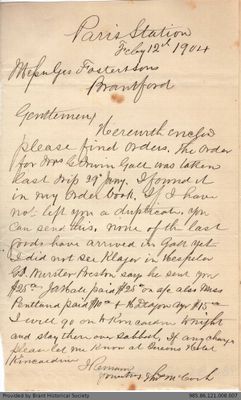 Paris Station
Feby 12th 1904
Geo Foster & Sons
Brantford
Gentlemen
Herewith enclos
please find orders. The order
for Galt was taken
last trip 29 Jany. I found it
in my order book. If I have
not left you a duplicate. you
can send this, none of the last
goods have arrived in Galt yet
I did not see Klager in Hespeler
Preston says he sent you
$25 paid $25 on a/c also Miss
Pentland paid
I will go on to Kincardine tonight
and stay there over Sabbath, If any change
please let me know at Queens Hotel
Kincardine
I Remain
Yours truly
Provided by Brant Historical Society
985.86.121.006.007